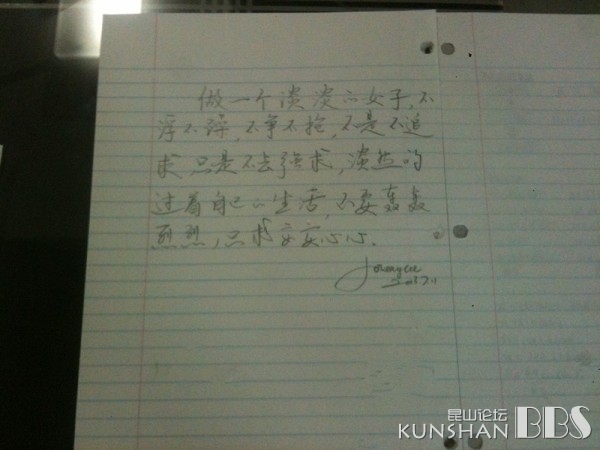 做一个淡淡的女子,不
浮不躁,不争不抢,不是不追
求,只是不去强求,淡然的
过着自己的生活,不要轰轰
烈烈,只求安安心心.
昆山论坛
KUNSHAN BBS